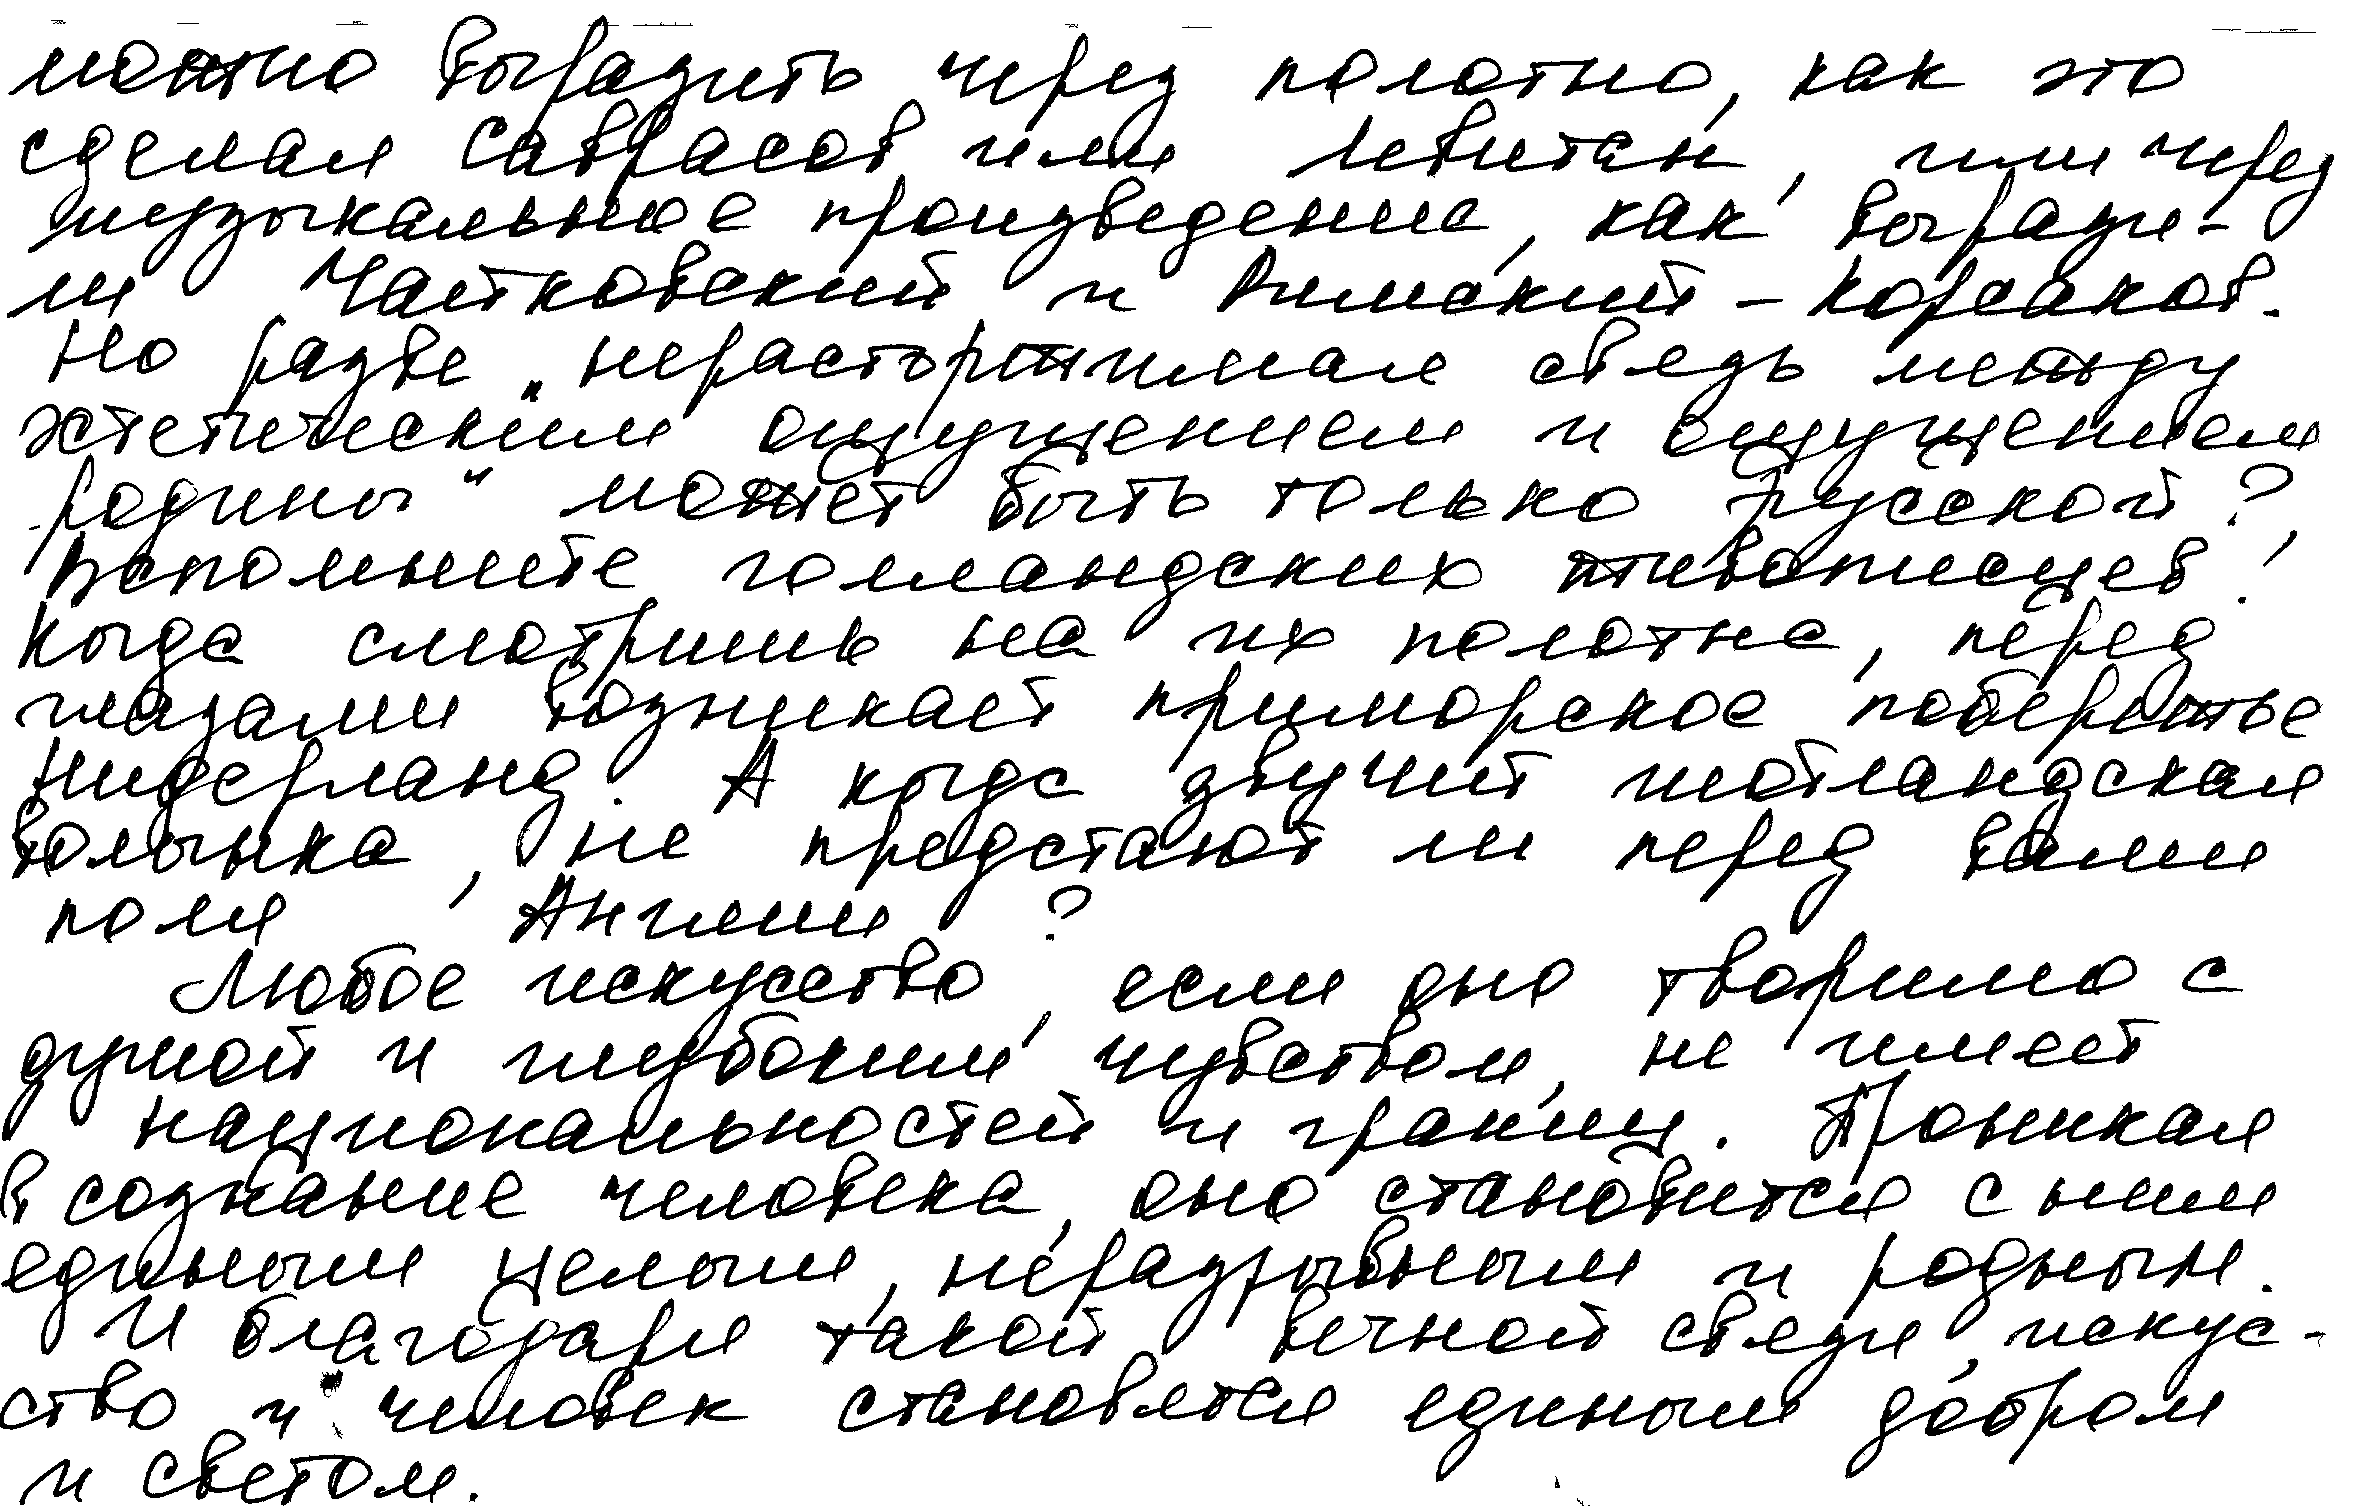 можно выразить через полотно, как это
сделал Саврасов или Левитан, или через
музыкальное произведение, как вырази-
ли Чайковский и Римский-Корсаков.
Но разве „нерасторжимая связь между
эстетическим ощущением и ощущением
родины" может быть только русской?
Вспомните голландских живописцев!
Когда смотришь на их полотна, перед
глазами возникает приморское побережье
Нидерланд. А когда звучит шотландская
волынка, не предстают ли перед вами
поля Англии?
Любое искусство, если оно творимо с
душой и глубоким чувством, не имеет
национальностей и границ. Проникая
в сознание человека, оно становится с ним
единым целым, неразрывным и родным.
И благодаря такой вечной связи, искус-
ство и человек становятся единым добром
и светом.